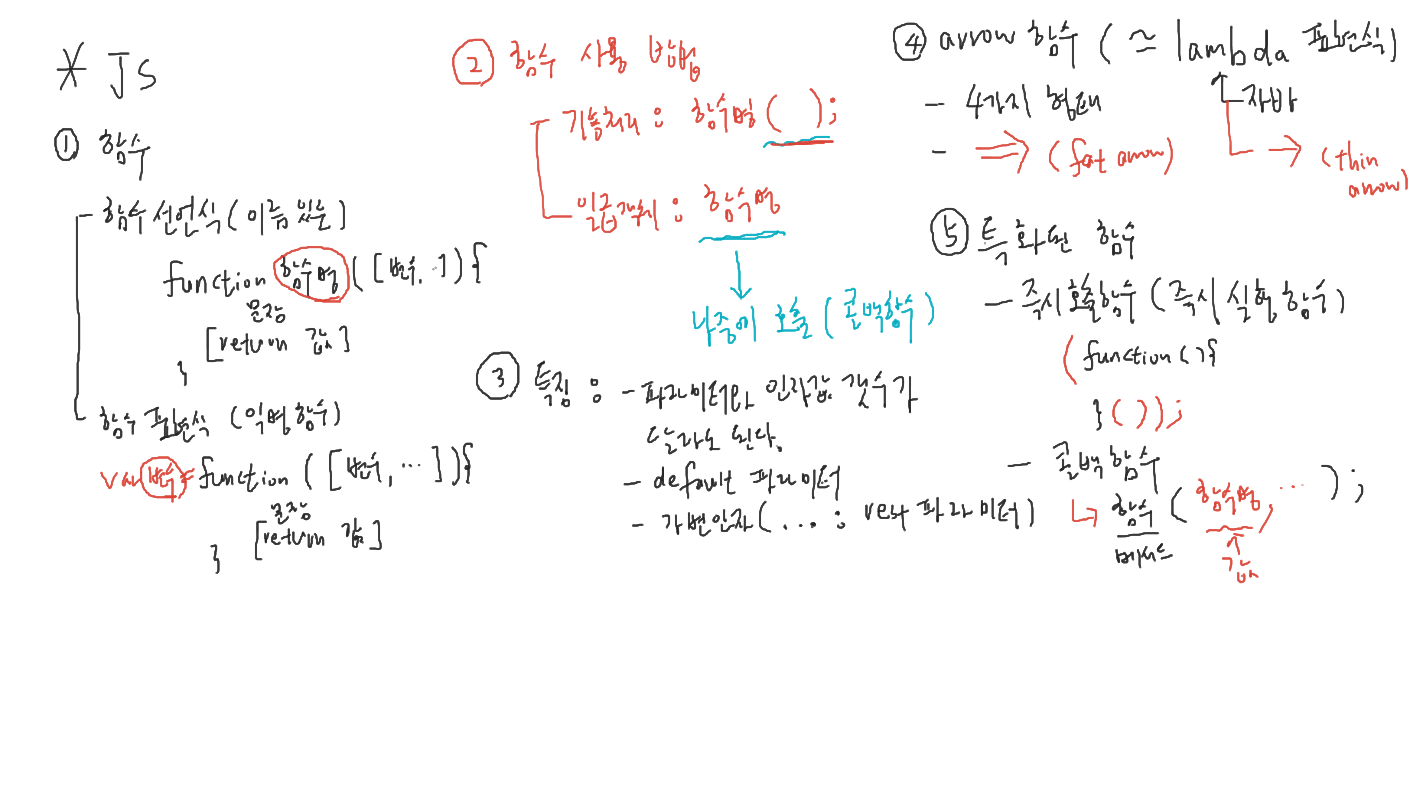 * JS
① 함수
- 함수 선언식 (이름 있는)
function 함수명 ([변수, ..]) {
문장
[return 값]
}
- 함수 표현식 (익명 함수)
var 변수 = function ([변수, ...]) {
문장
[return 값]
}
② 함수 사용 방법
- 기능처리 : 함수명 ( );
- 일급객체 : 함수명
나중에 호출 (콜백함수)
③ 특징 : - 파라미터와 인자값 갯수가
달라도 된다.
- default 파라미터
- 가변인자 (... : rest 파라미터)
④ arrow 함수 (≃ lambda 표현식)
- 4가지 형태
자바
- ⇒ (fat arrow)
→ (thin
arrow)
⑤ 특화된 함수
- 즉시 호출함수 (즉시 실행 함수)
( function () {
} ( ) );
- 콜백 함수
↳ 함수 ( 함수명, ... );
메서드
값